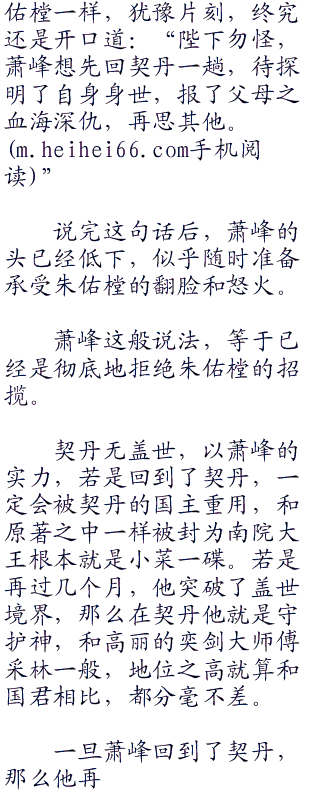 佑樘一样，犹豫片刻，终究
还是开口道：“陛下勿怪，
萧峰想先回契丹一趟，待探
明了自身身世，报了父母之
血海深仇，再思其他。
(m.heihei66.com手机阅
读)”
说完这句话后，萧峰的
头已经低下，似乎随时准备
承受朱佑樘的翻脸和怒火。
萧峰这般说法，等于已
经是彻底地拒绝朱佑樘的招
揽。
契丹无盖世，以萧峰的
实力，若是回到了契丹，一
定会被契丹的国主重用，和
原著之中一样被封为南院大
王根本就是小菜一碟。若是
再过几个月，他突破了盖世
境界，那么在契丹他就是守
护神，和高丽的奕剑大师傅
采林一般，地位之高就算和
国君相比，都分毫不差。
一旦萧峰回到了契丹，
那么他再